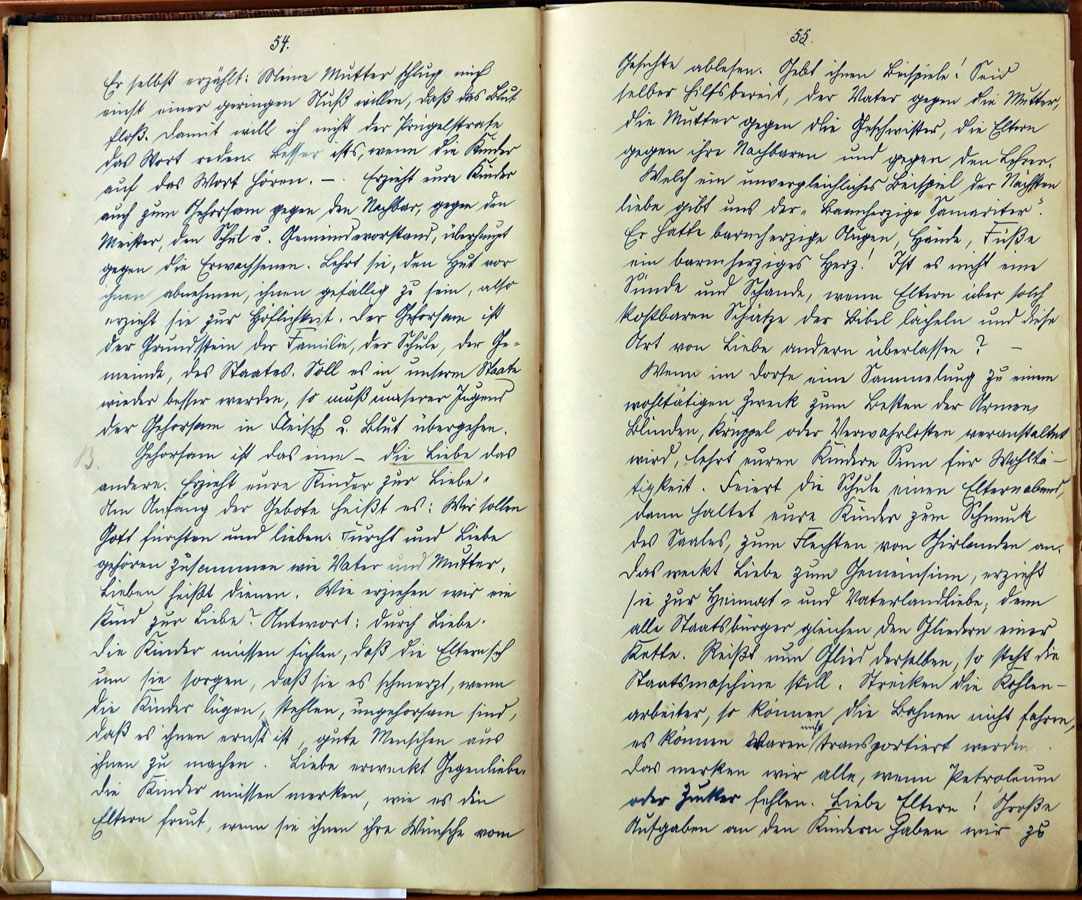 54.
Er selbst erzählt: Meine Mutter schlug mich
einst einer geringen Nuß willen, daß das Blut
floß. Damit will ich nicht der Prügelstrafe
das Wort reden. Besser ists, wenn die Kinder
auf das Wort hören. —. Erzieht eure Kinder
auch zum Gehorsam gegen den Nachbar, gegen den
Meister, den Schul u. Gemeindevorstand, überhaupt
gegen die Erwachsenen. Lehrt sie, den Hut vor
ihnen abnehmen, ihnen gefällig zu sein, also
erzieht sie zur Höflichkeit. Der Gehorsam ist
der Grundstein der Familie, der Schule, der Ge-
meinde, des Staates. Soll es in unserm Staate
wieder besser werden, so muß unserer Jugend
der Gehorsam in Fleisch u. Blut übergehen.
B. Gehorsam ist das eine – die Liebe das
andere. Erzieht eure Kinder zur Liebe.
Am Anfang der Gebote heißt es: Wir sollen
Gott fürchten und lieben. Furcht und Liebe
gehören zusammen wie Vater und Mutter.
Lieben heißt dienen. Wie erziehen wir ein
Kind zur Liebe? Antwort: Durch Liebe.
Die Kinder müssen fühlen, daß die Eltern sich
um sie sorgen, daß sie es schmerzt, wenn
die Kinder lügen, stehlen, ungehorsam sind,
daß es ihnen ernst ist, gute Menschen aus
ihnen zu machen. Liebe erweckt Gegenliebe.
Die Kinder müssen merken, wie es die
Eltern freut, wenn sie ihnen ihre Wünsche vom
55.
Gesichte ablesen. Gebt ihnen Beispiele! Seid
selber hilfsbereit, der Vater gegen die Mutter,
die Mutter gegen die Geschwister, die Eltern
gegen ihre Nachbaren und gegen den Lehrer.
Welch ein unvergleichliches Beispiel der Nächsten
liebe gibt uns der „Barmherzige Samariter".
Er hatte barmherzige Augen, Hände, Füße
ein barmherziges Herz! Ist es nicht eine
Sünde und Schande, wenn Eltern über solch
kostbaren Schätze der Bibel lächeln und diese
Art von Liebe andern überlassen? —
Wenn im Dorfe eine Sammelung zu einem
wohltätigen Zweck zum Besten der Armen,
Blinden, Krüppel oder Verwahrlosten veranstaltet
wird, lehrt euren Kindern Sinn für Wohltä-
tigkeit. Feiert die Schule einen Elternabend,
dann haltet eure Kinder zum Schmuk
des Saales, zum Flechten von Girlanden an.
Das weckt Liebe zum Gemeinsinn, erzieht
sie zur Heimat- und Vaterlandliebe; denn
alle Staatsbürger gleichen den Gliedern einer
Kette. Reißt nun Glied derselben, so steht die
Staatsmaschine still. Streiken die Kohlen-
arbeiter, so können die Bahnen nicht fahren,
es können Waren nicht transportiert werden.
Das merken wir alle, wenn Petroleum
oder Zucker fehlen. Liebe Eltern! Große
Aufgaben an den Kindern haben wir zu